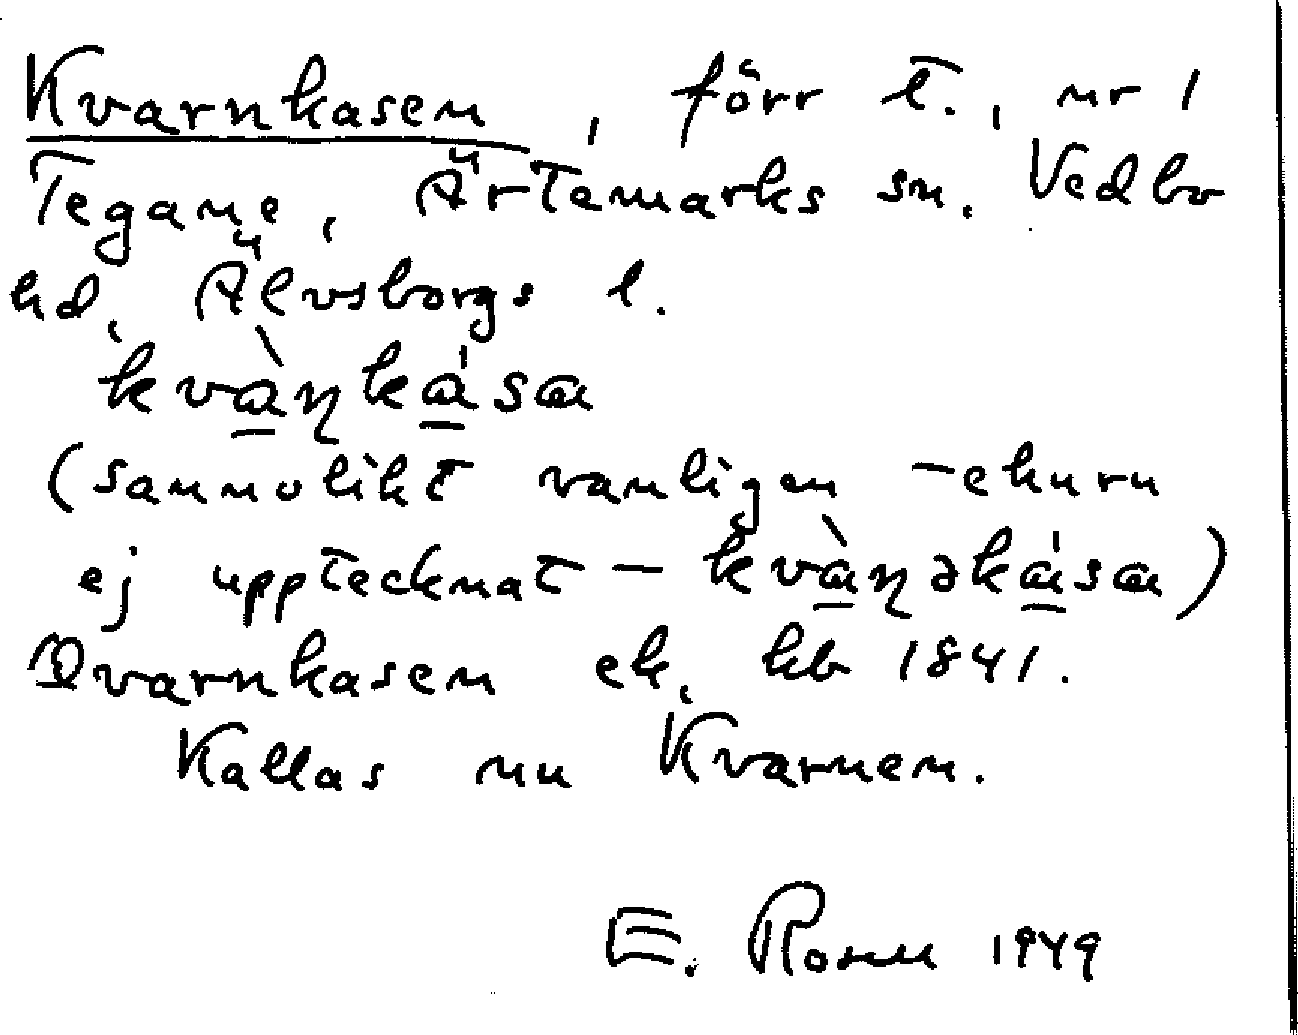 Kvarnkasen, förr t., nr 1
Tegane, Ärtemarks sn. Vedbo
hd, Älvsborgs l.
kvàn̥kása
(sannolikt vanligen – ehuru
ej upptecknat – kvàn̥əkása)
Qvarnkasen ek. kb 1841.
Kallas nu Kvarnen.
E. Rosell 1949